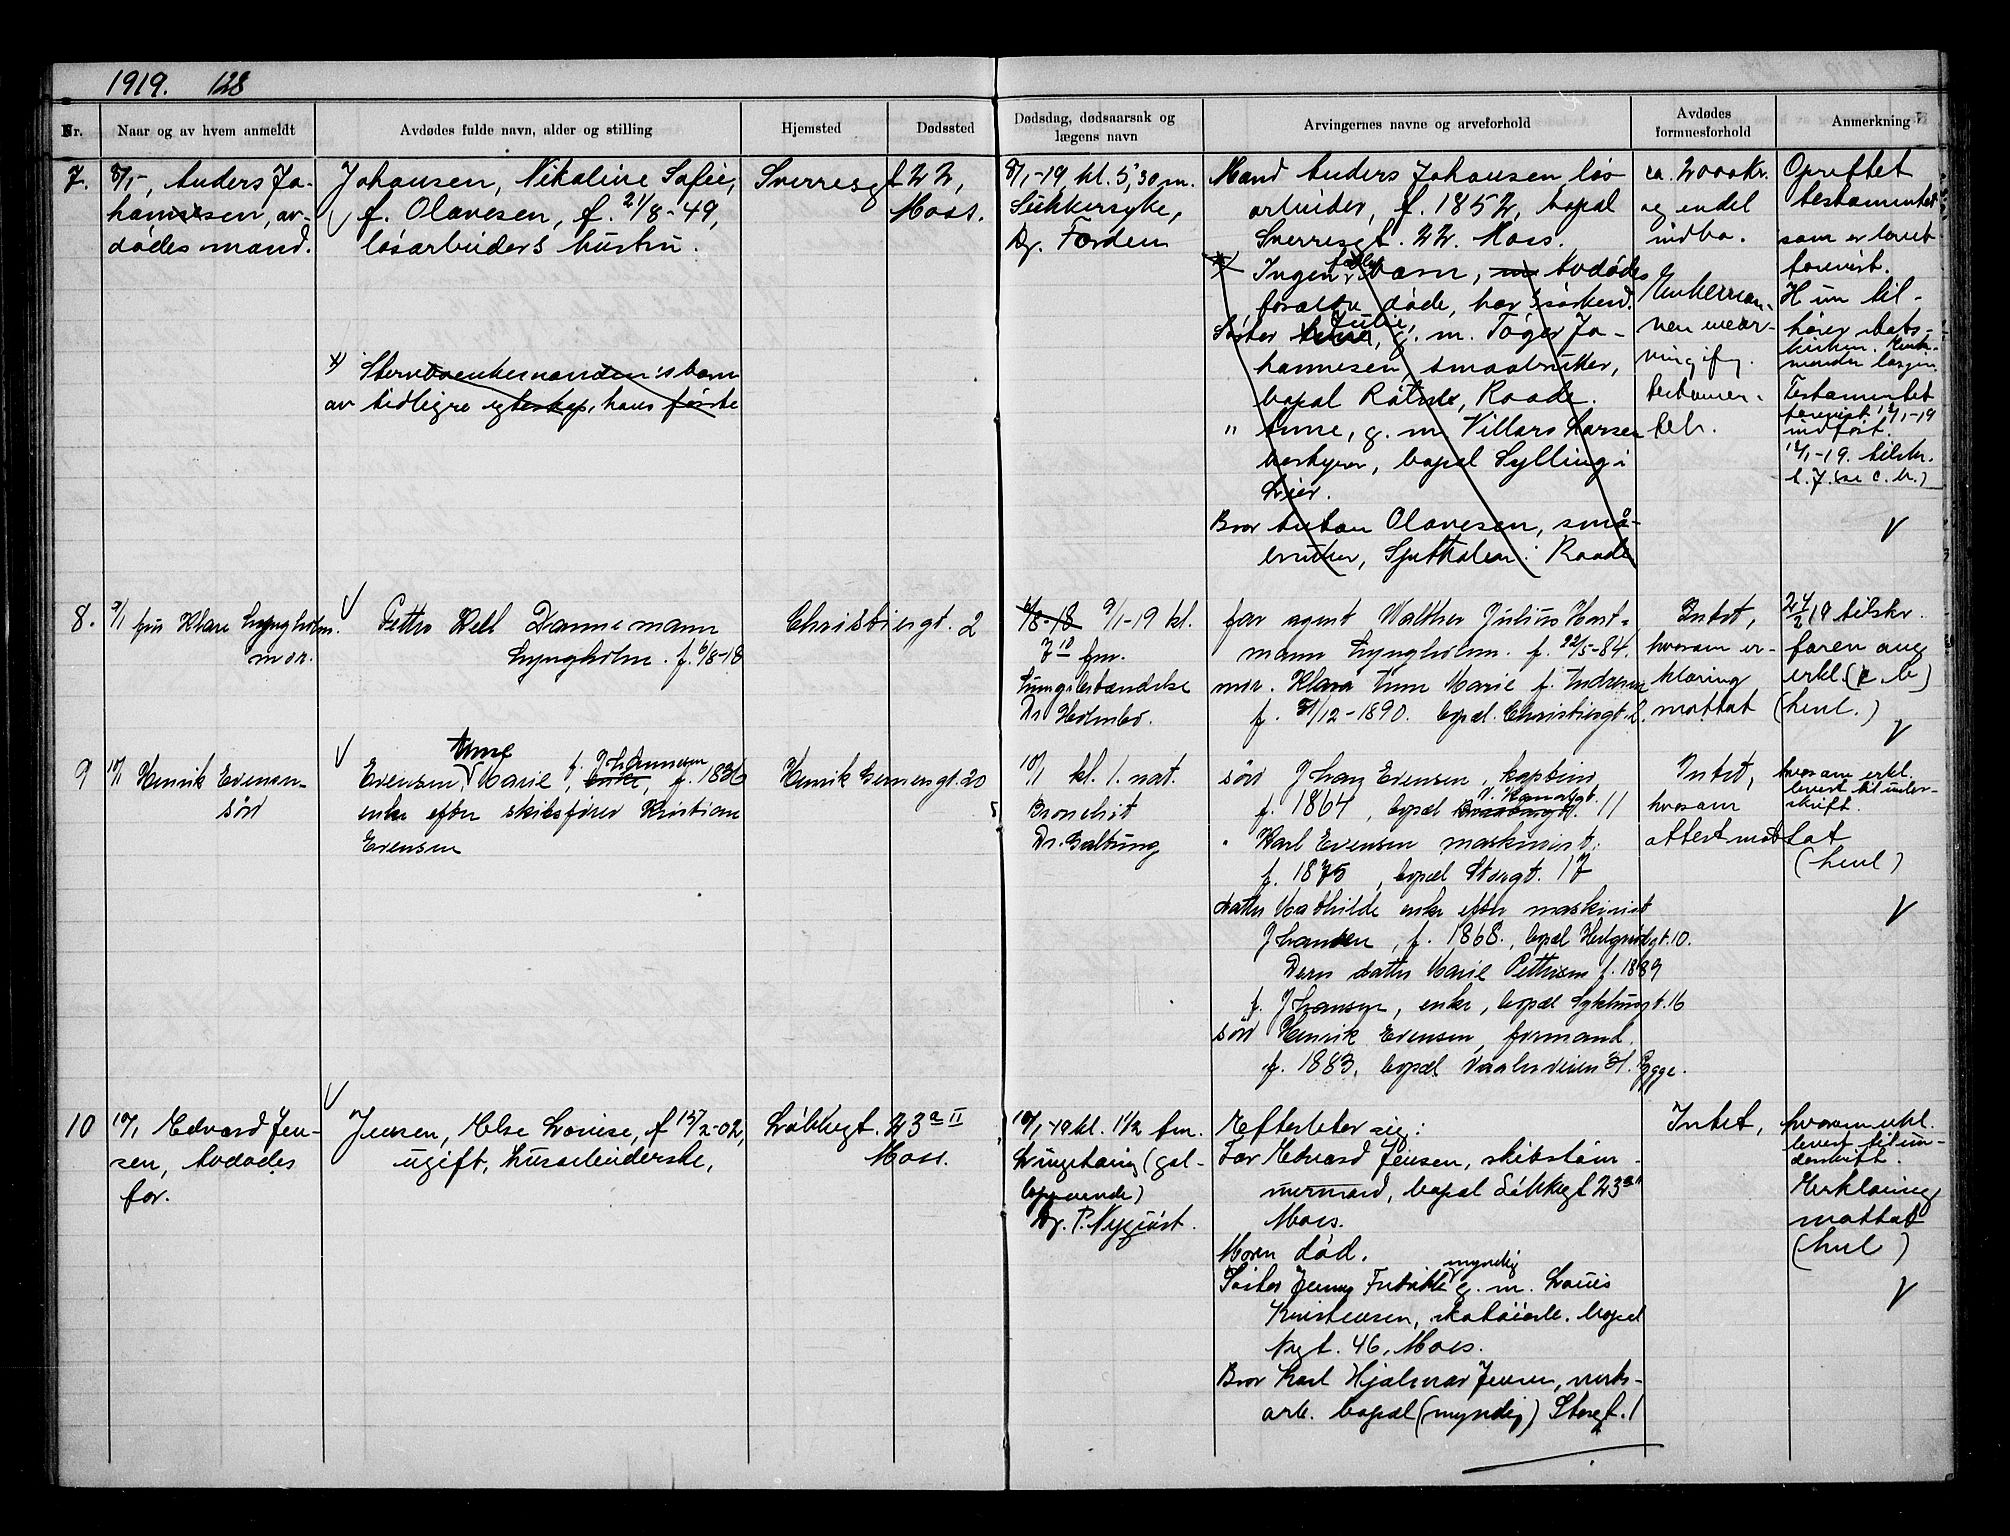 1919. 128
Nr.
Naar og av hvem anmeldt
Avdødes fulde navn, alder og stilling
Hjemsted
Dødssted
Dødsdag, dødsaarsak og
lægens navn
Arvingernes navne og arveforhold
Avdødes
formuesforhold
Anmerkning
7.
8/1-, Anders Jo-
hannesen, av-
dødes mand.
Johansen, Nikoline Sofie,
f. Olavesen, f. 21/8-49,
løsarbeiders hustru.
x) Stervboenkemanden's barn
av tidligre egteskap, hans første
Sverresgt 22,
Moss.
8/1-19 kl. 5,30 m.
Sukkersyke,
Dr. Forden
Mand Anders Johansen, løs
arbeider, f. 1852, bopæl
Sverresgt. 22. Moss.
Ingen barn, Avdødes
forældre døde, har søskend.
Søster Julie, g. m. Tøger Jo-
hannesen, smaabruker,
bopæl Råde.
" Anne, g. m. Villars Larsen
bestyrer, bopæl Sylling i
Lier.
Bror Anton Olavesen, små-
bruker, i Raade
ca. 2000 kr.
og endel
indbo.
Enkeman-
nen enear-
ving ifg.
testamen-
tet.
Oprettet
testamentet
som er lovet
forevist.
Hun til-
hører stats-
kirken.
Testamentet
forevist 12/1-19
indført.
12/1-19. tilskr.
8.
9/1 fru Klara Lyngholm.
mor.
Petter Kell Dannemann
Lyngholm. f. 6/8-18
Christiesgt. 2
6/8-18 9/1-19 kl.
7 10 fm.
Lungebetændelse
Dr Holmbo.
far agent Walther Julius Hart-
mann Lyngholm. f. 22/5-84.
mor. Klara Anna Marie f. Andresen
f. 31/12-1890. bopæl. Christiesgt. 2.
Intet,
hvorom er-
klæring
mottat
24/2 19 tilskr.
faren ang
erkl. (c. b)
(henl.)
9
10/1 Henrik Evensen-
søn
Evensen, Anne Marie, f. Johannesen enke, f. 1836
enke efter skibsfører Kristian
Evensen
Henrik Gernersgt. 20
10/1 kl. 1. nat.
Bronchit
Dr. Galtung
søn Johan Evensen, kaptein
f. 1864, bopæl V. Kanalgt. 11
" Karl Evensen maskinist.
f. 1875, bopæl Storgt. 17
datter Mathilde enke efter maskinist
Johansen, f. 1868., bopæl Helgerødgt. 10.
Deres datter Marie Pettersen f. 1889
f. Johansen, enke, bopæl Sykehusgt. 16
søn Henrik Evensen, formand.
f. 1883, bopæl Vaalerveien 31. Rygge.
Intet,
hvorom
attest mottat
hvorom erkl.
levert til under-
skrift.
(henl)
10
10/1 Edvard Jen-
sen, Avdødes
far.
Jensen, Else Lovise, f 13/2-02,
ugift, husarbeiderske,
Løkkegt. 23 a II
Moss.
10/1-19 kl. 1 1/2 fm.
Lungetæring (gal-
loperende)
Dr. P. Nyquist.
Efterlater sig:
Far Edvard Jensen, skibstøm-
mermand, bopæl Løkkegt 23 a II
Moss.
Moren død.
Søster Jenny Fredrikke myndig g. m. Louis
Kristensen, skotøiarb. bopæl
Nygt. 46, Moss.
Bror Karl Hjalmar Jensen, verks-
arb. bopæl (myndig) Storgt. 1
Intet,
hvorom erkl.
levert til un-
derskrift.
Erklæring
mottat
(henl)